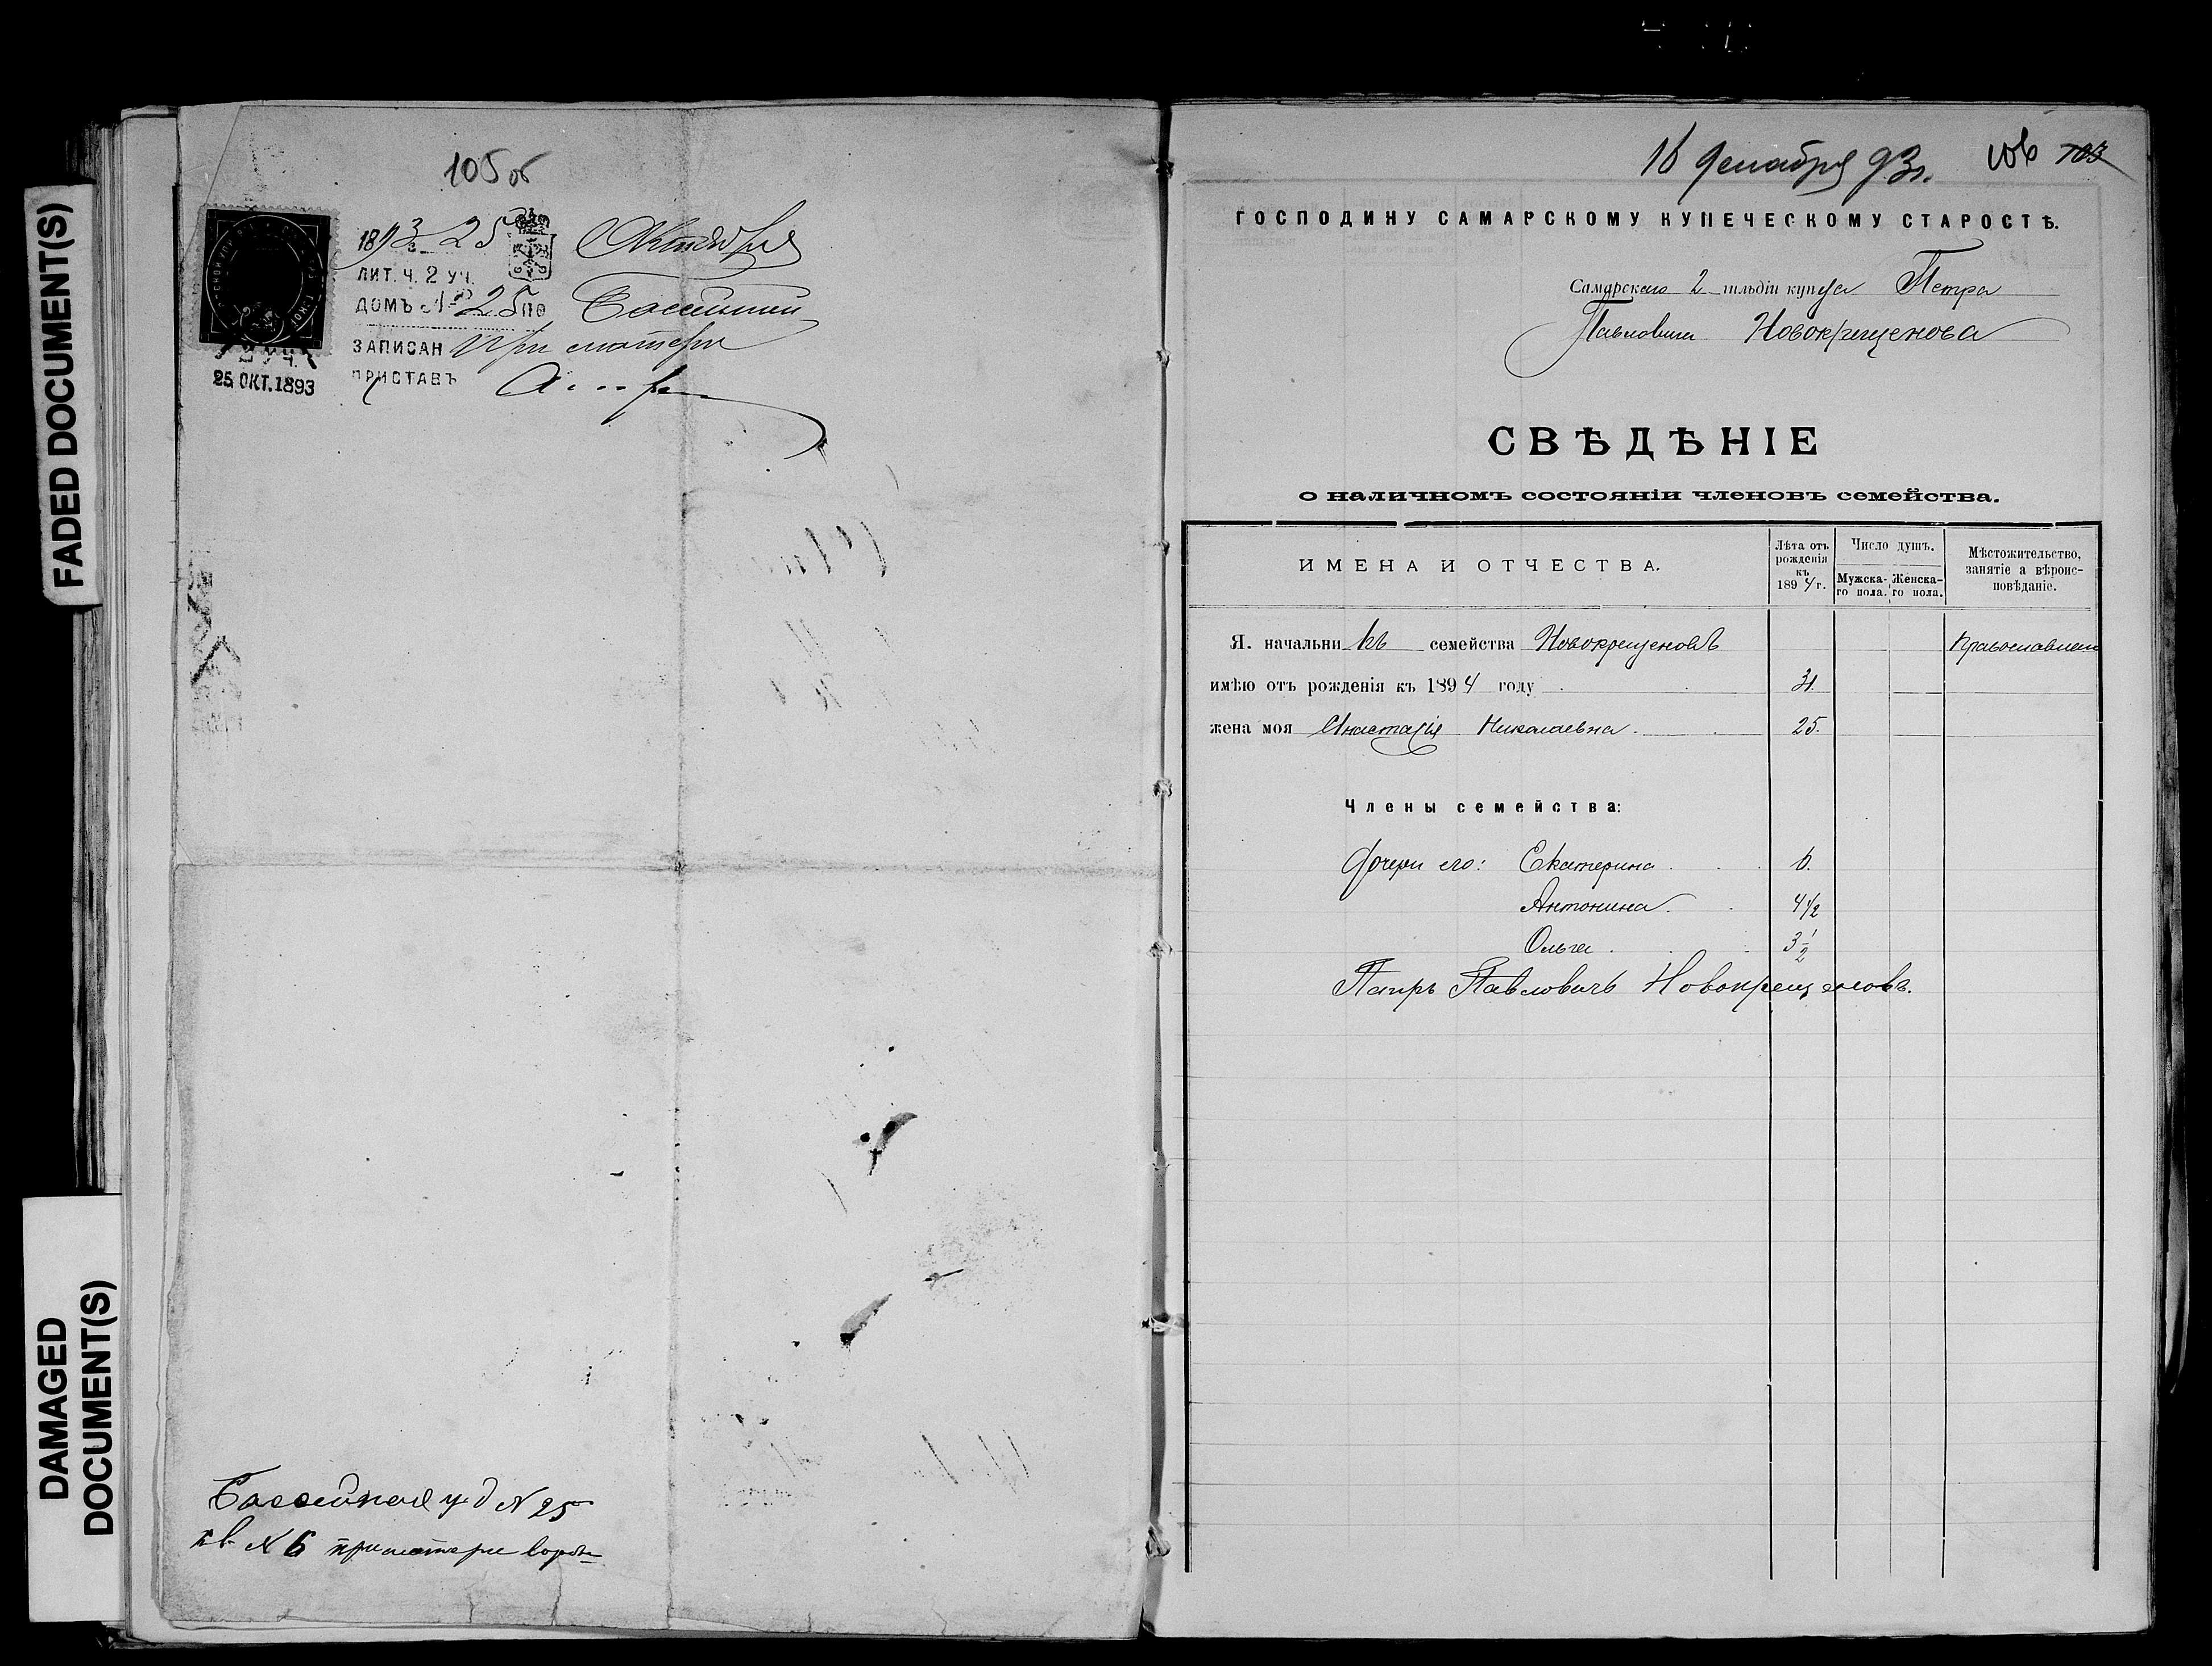 FADED DOCUMENT(S)
DAMAGED
DOCUMENT(S)
105 об
1893 25 Октября
ЛИТ. Ч. 2 УЧ.
ДОМЪ № 25 ПО Бассейной
ЗАПИСАН При матери
ПРИСТАВЪ
2 УЧ.
25 ОКТ. 1893
Бассейная у д N 25
кв N 6 при матери
16 Декабря 93 г. 106 703
ГОСПОДИНУ САМАРСКОМУ КУПЕЧЕСКОМУ СТАРОСТѢ.
Самарскаго 2 гильдіи купца Петра
Павловича Новокрещенова
СВѢДѢНІЕ
о наличномъ состояніи членовъ семейства.
ИМЕНА И ОТЧЕСТВА.
Лѣта отъ рожденія къ 1894 г.
Число душъ.
Мужска-го пола.
Женска-го пола.
Мѣстожительство, занятіе а вѣроис-повѣданіе.
Я. начальникъ семейства Новокрещеновъ
имѣю отъ рожденія къ 1894 году 31.
жена моя Анастасія Николаевна. 25.
Члены семейства:
Дочери его: Екатерина 6.
Антонина. 4 1/2
Ольга 3 1/2
Петръ Павловичъ Новокрещеновъ.